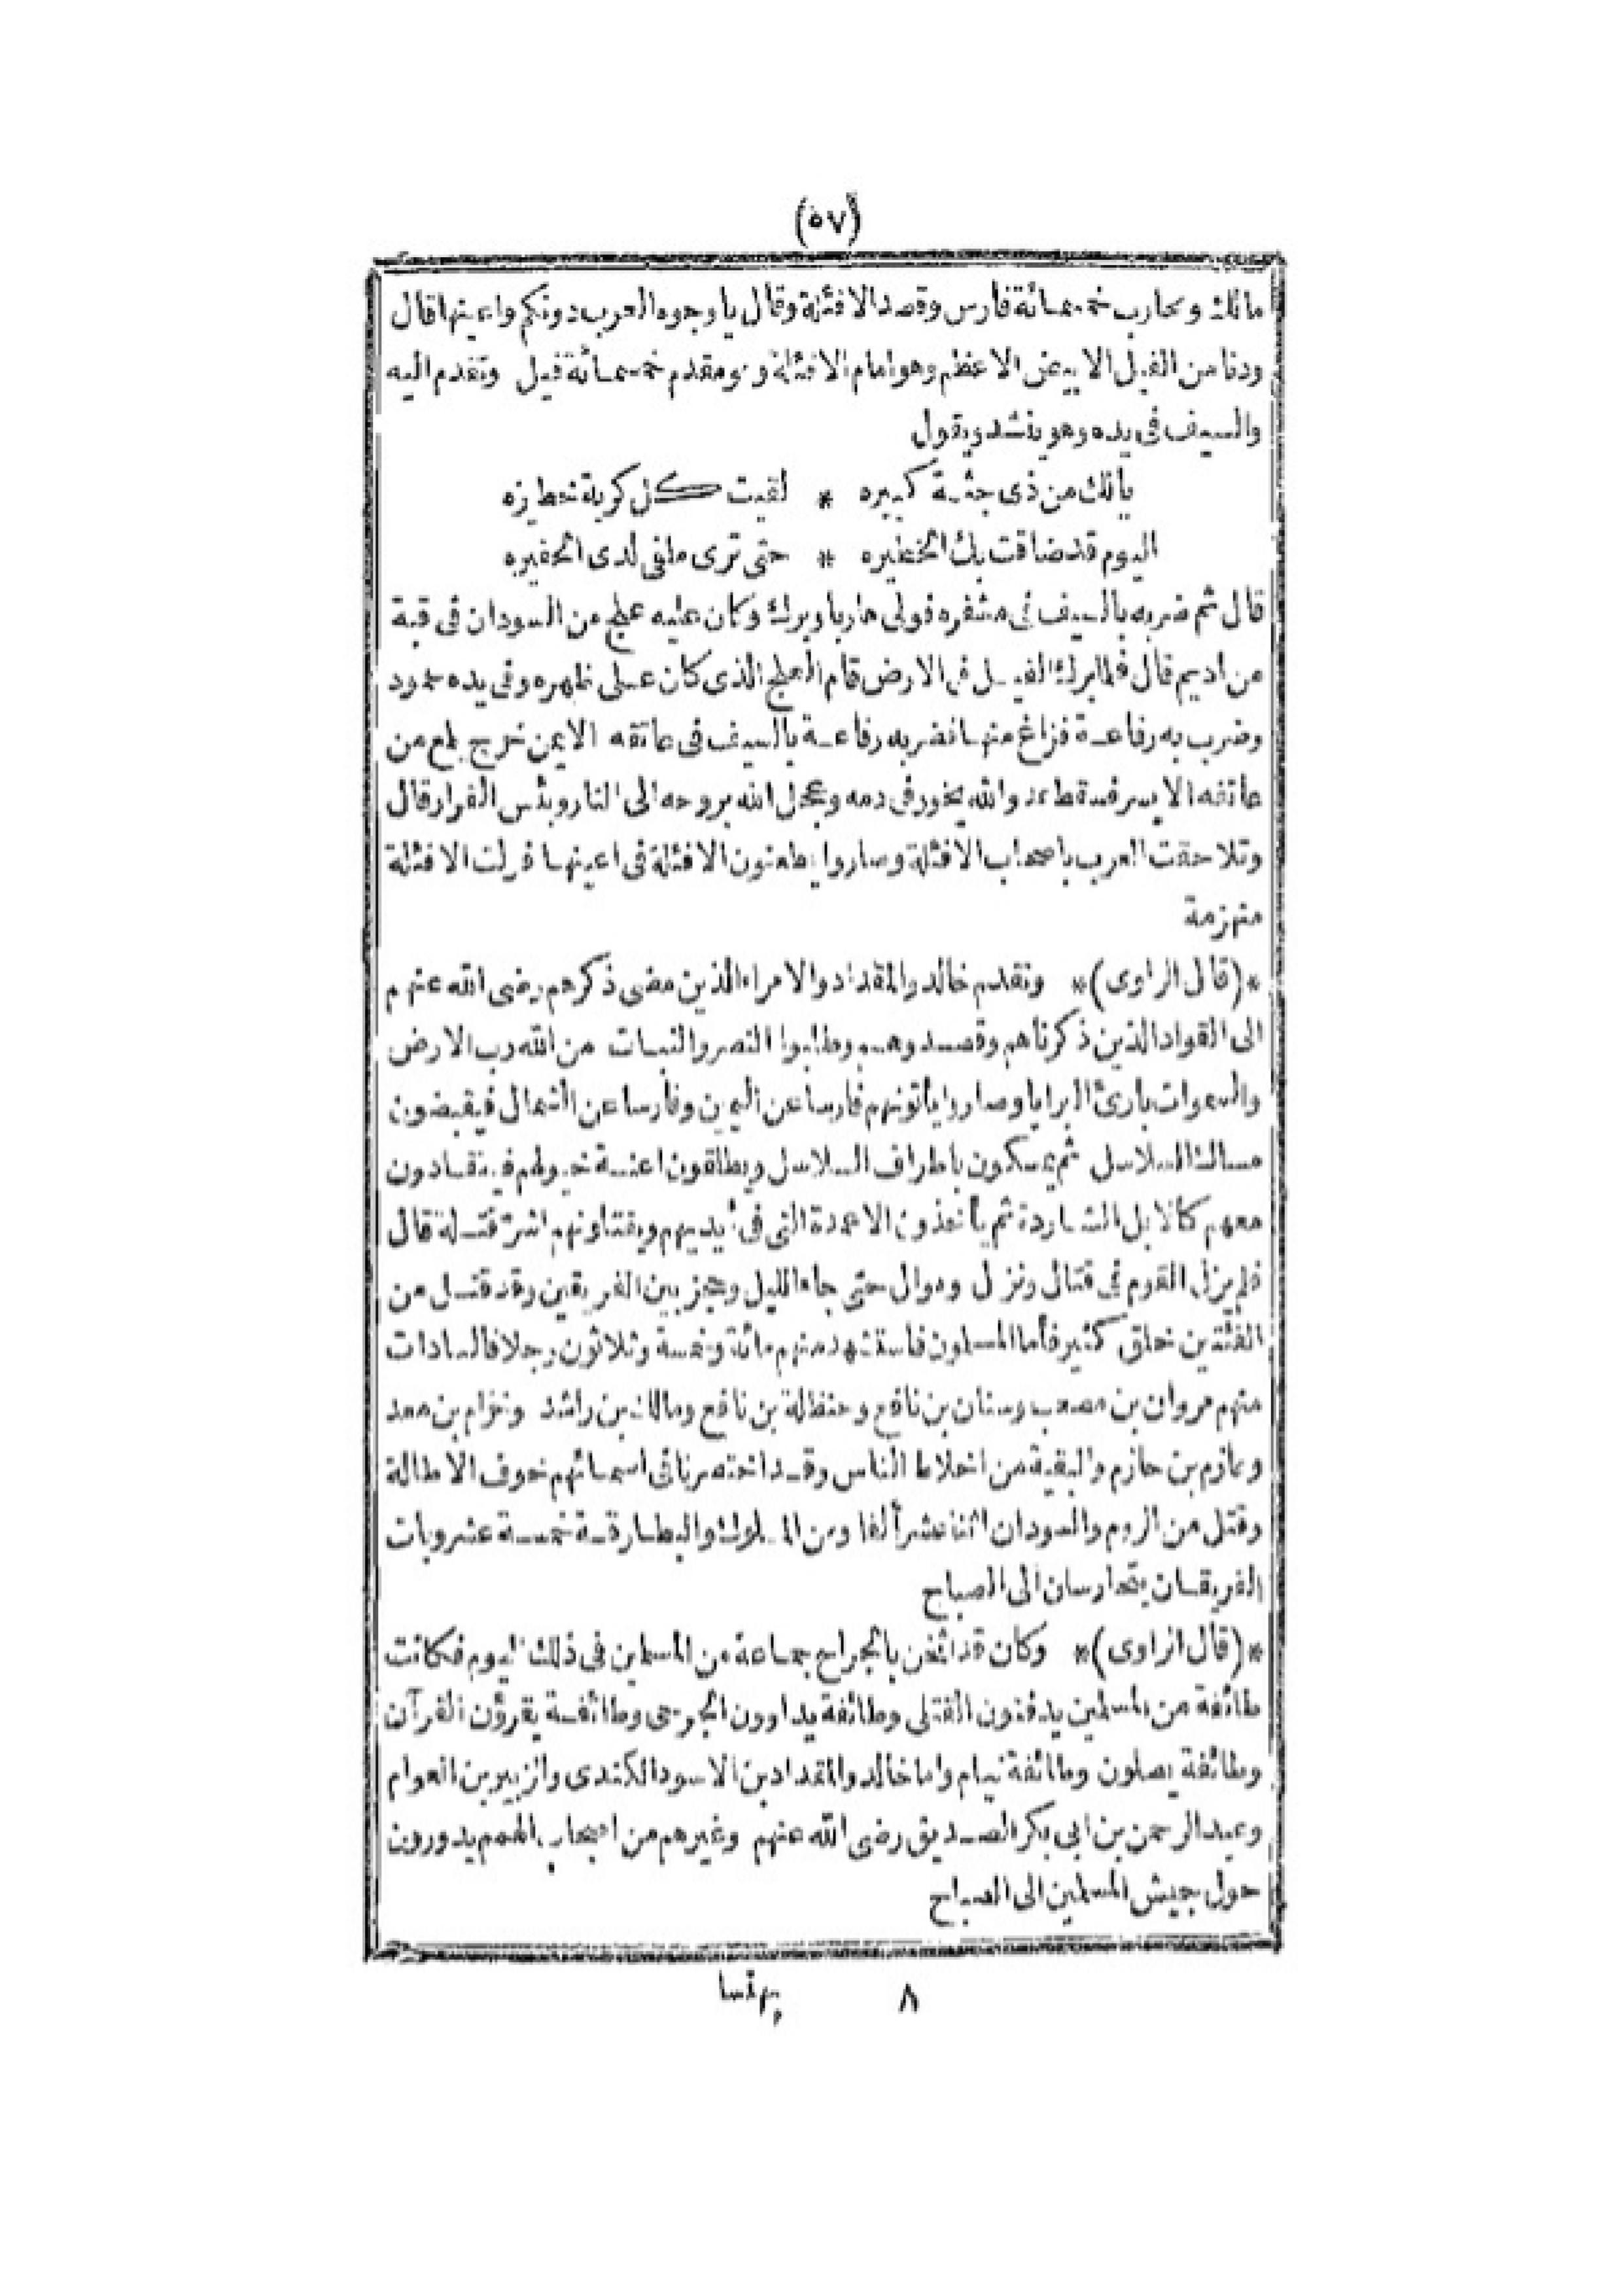 (٥٧)
مالك ومحارب خمسمائة فارس وقصد الافئلة وقال يا وجوه العرب دونكم واعينها قال
ودنا من الفيل الابيض الاعظم وهو امام الافئلة وهو مقدم خمسمائة فيل وتقدم اليه
والسيف فى يده وهو ينشد ويقول
يالك من ذى جثة كبيره * لقيت كل كريهة خطيره
اليوم قد ضاقت بك الحظيره * حتى ترى ملقى لدى الحفيره
قال ثم ضربه بالسيف فى مشفره فولى هاربا وبرك وكان عليه علج من السودان فى قبة
من اديم قال فلما برك الفيل فى الارض قام العلج الذى كان على ظهره وفى يده عمود
وضرب به رفاعة فزاغ منها فضربه رفاعة بالسيف فى عاتقه الايمن خرج يلمع من
عاتقه الايسر فسقط عدو الله يخور فى دمه وعجل الله بروحه الى النار وبئس القرار قال
وتلاحقت العرب باصحاب الافئلة وصاروا يطعنون الافئلة فى اعينها فولت الافئلة
منهزمة
*(قال الراوى)* وتقدم خالد والمقداد والامراء الذين مضى ذكرهم رضى الله عنهم
الى القواد الذين ذكرناهم وقصدوهم وطلبوا النصر والثبات من الله رب الارض
والسموات بارئ البرايا وصاروا يأتونهم فارسا عن اليمين وفارسا عن الشمال فيقبضون
مسالك السلاسل ثم يمسكون باطراف السلاسل ويطلقون اعنة خيولهم فينقادون
معهم كالابل الشاردة ثم يأخذون الاعمدة التى فى أيديهم ويقتلونهم اشر قتلة قال
فلم يزل القوم فى قتال ونزل وهوال حتى جاء الليل وحجز بين الفريقين وقد قتل من
الفئتين خلق كثير فأما المسلمون فاستشهد منهم مائة وخمسة وثلاثون رجلا فالسادات
منهم مروان بن مصعب وسنان بن نافع وحنظلة بن نافع ومالك بن راشد وخزام بن معد
وعازم بن حازم والبقية من اخلاط الناس وقد اختصرنا فى اسمائهم خوف الاطالة
وقتل من الروم والسودان اثنا عشر ألفا ومن الملوك والبطارقة خمسة عشر وبات
الفريقان يتحارسان الى الصباح
*(قال الراوى)* وكان قد اثخن بالجراح جماعة من المسلمين فى ذلك اليوم فكانت
طائفة من المسلمين يدفنون القتلى وطائفة يداوون الجرحى وطائفة يقرؤن القرآن
وطائفة يصلون وطائفة نيام واما خالد والمقداد بن الاسود الكندى والزبير بن العوام
وعبد الرحمن بن ابى بكر الصديق رضى الله عنهم وغيرهم من اصحاب الهمم يدورون
حول جيش المسلمين الى الصباح
٨ بهنسا